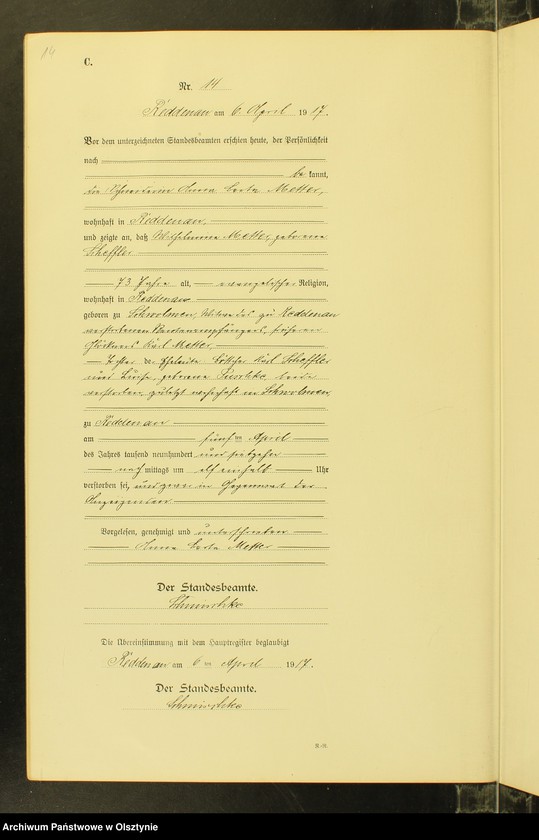 14
C.
Nr. 14
Reddenau am 6. April 1917.
Vor dem unterzeichneten Standesbeamten erschien heute, der Persönlichkeit
nach
be kannt,
die Anna Berta Metter,
wohnhaft in Reddenau,
und zeigte an, daß Wilhelmine Metter, geborene
Scheffler
73 Jahre alt, evangelischer Religion,
wohnhaft in Reddenau
geboren zu Schwolmen, Witwe des zu Reddenau
verstorbenen Rentenempfängers, früheren
Karl Metter
Tochter der Eheleute Karl Scheffler
und geborene beide
verstorben, zuletzt wohnhaft in Schwolmen,
zu Reddenau
am fünften April
des Jahres tausend neunhundert und siebzehn
nach mittags um elf einhalb Uhr
verstorben sei, und zwar in Gegenwart der
Anzeigenden
Vorgelesen, genehmigt und unterschrieben
Anna Berta Metter
Der Standesbeamte.
Die Übereinstimmung mit dem Hauptregister beglaubigt
Reddenau am 6 ten April 1917.
Der Standesbeamte.
Archiwum Państwowe w Olsztynie